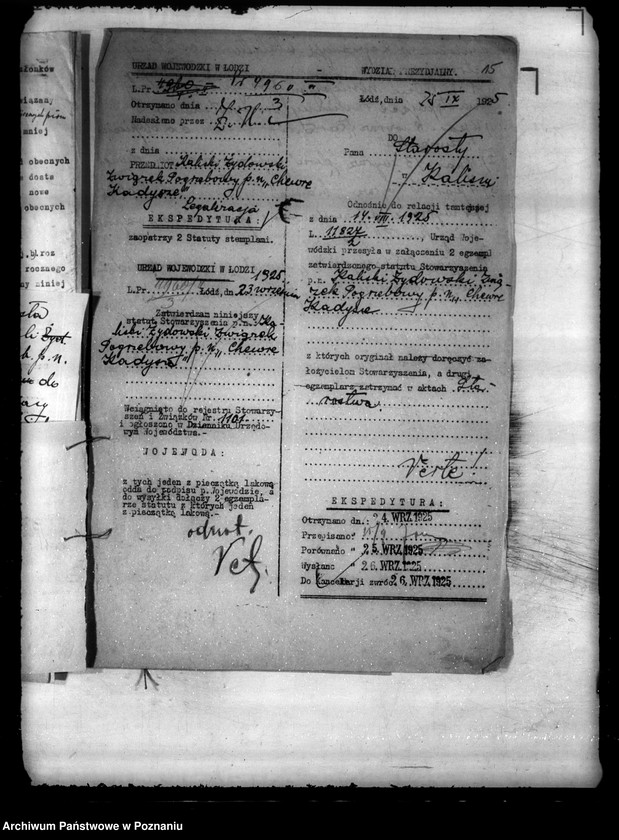 URZĄD WOJEWÓDZKI W ŁODZI
WYDZIAŁ PREZYDJALNY.
15
L.Pr.
Łódź, dnia 25 IX 1925
Otrzymano dnia
Nadesłano przez
z dnia
PRZEDMIOT Kaliski Żydowski
Związek Pogrzebowy p.n. „Chewre
Kadysze"
Legalizacja
EKSPEDYTURA:
zaopatrzy 2 Statuty stemplami.
URZĄD WOJEWÓDZKI W ŁODZI 1925
L.Pr. Łódź, dn. 23 września
Zatwierdzam niniejszy
statut Stowarzyszenia p.n. Ka-
liski Żydowski Związek
Pogrzebowy p.n. „Chewre
Kadysze"
Wciągnięto do rejestru Stowarzy-
szeń i Związków Nr. 1101
i ogłoszono w Dzienniku Urzędo-
wym Województwa.-
WOJEWODA:
z tych jeden z pieczątką lakową
odda do podpisu p.Wojewodzie, a
do wysyłki dołączy 2 egzempla-
rze statutu z których jeden
z pieczątką lakową.-
odnot.
DO
Pana Starosty
w Kaliszu
Odnośnie do relacji tamtejszej
z dnia 14. VIII. 1925
L. 11827/2, Urząd Woje-
wódzki przesyła w załączeniu 2 egzempl
zatwierdzonego statutu Stowarzyszenia
p.n. Kaliski Żydowski Zwią-
zek Pogrzebowy p.n. „Chewre
Kadysze
z których oryginał należy doręczyć za-
łożycielom Stowarzyszenia, a drugi
egzemplarz zatrzymać w aktach Sta-
rostwa.
Verte!
EKSPEDYTURA:
Otrzymano dn.: 24. WRZ 1925
Przepisano "
Porównano " 25. WRZ 1925
Wysłano " 26. WRZ 1925
Do Kancelarji zwróc. 26. WRZ 1925
Archiwum Państwowe w Poznaniu